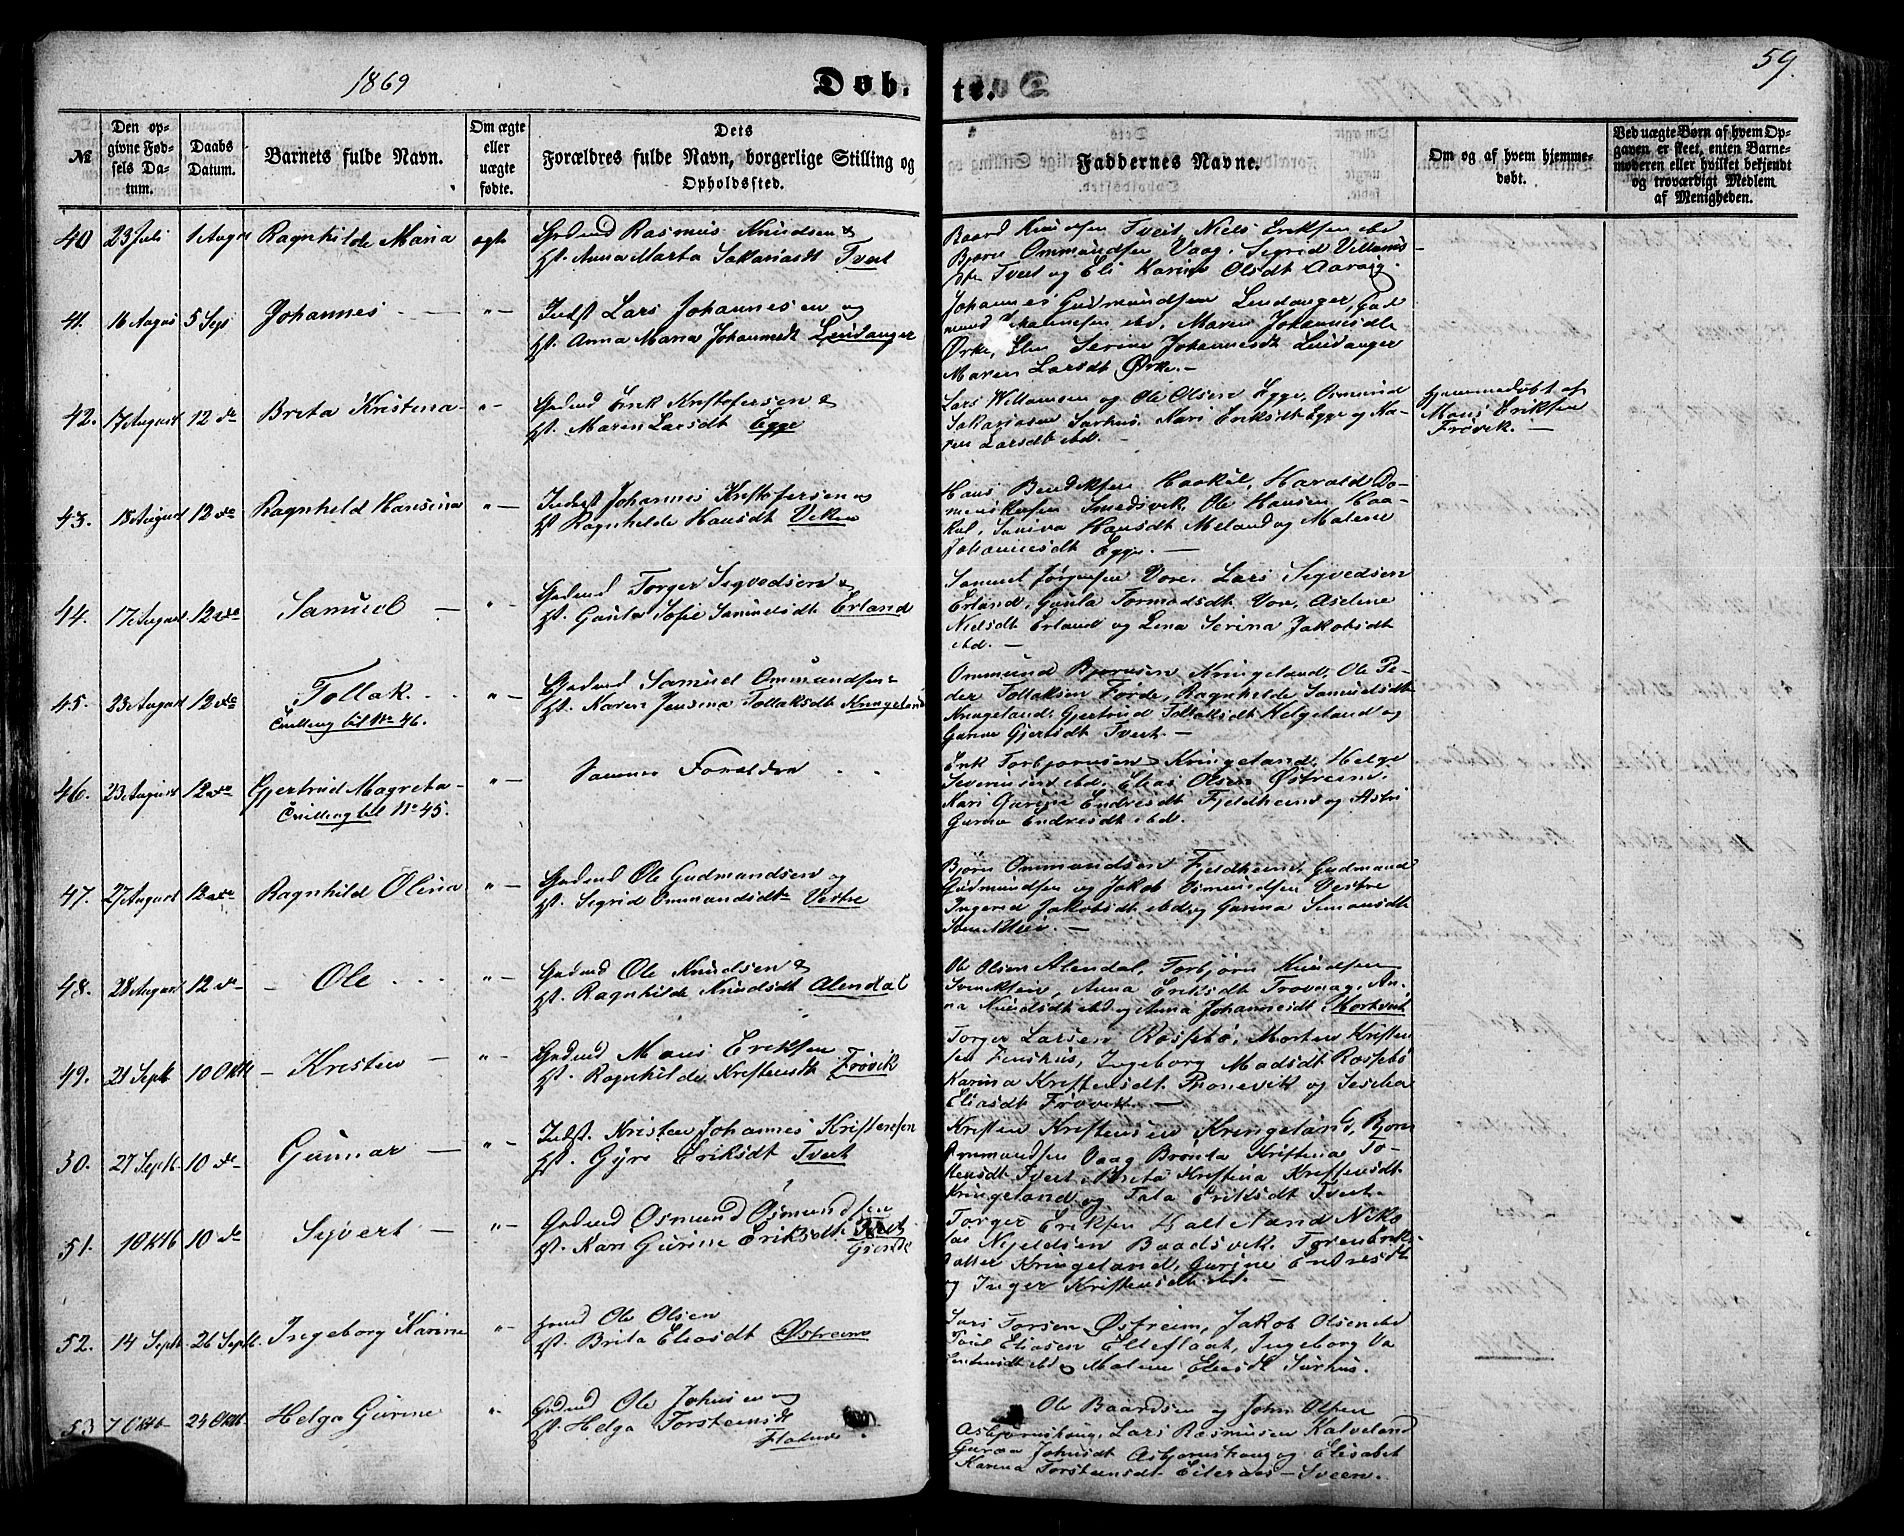 1869
Døb-
te.
59.
№
Den op-
givne Fød-
sels Da-
tum.
Daabs
Datum.
Barnets fulde Navn.
Om ægte
eller
uægte
fødte.
Dets
Forældres fulde Navn, borgerlige Stilling og
Opholdssted.
Faddernes Navne.
Om og af hvem hjemme-
døbt.
Ved uægte Børn af hvem Op-
gaven er skeet, enten Barne-
moderen eller hvilket bekjendt
og troværdigt Medlem
af Menigheden.
40 23 Juli 1 August Ragnhilde Maria ægte
Gadmd Rasmus Knudsen &
H. Anna Marta Sakariasdt Tveit
Baard Knudsen Tveit, Niels Eriksen ibd
Bjørn Ommundsen Vaag, Sigrid Villums
dtr Tveit og Eli Karine Olsdt Aarvig.
41. 16 August 5 Sept Johannes - "-
Indst Lars Johannesen og
H. Anna Maria Johannesdt Leirdanger
Johannes Gudmundsen Leirdanger, Gud
mund Johannesen ibd, Maren Johannesdt
Ørke, Elen Serine Johannesdt Leirdanger
Maren Larsdt Ørke. -
42. 17 August 12 do Brita Kristina "-
Gadmd Erik Kristofersen &
H. Maren Larsdt Egge
Lars Willumsen og Ole Olsen Egge, Osmund
Sakariasen Sørhus, Kari Eriksdt Egge og Ka-
ren Larsdt ibd. -
Hjemmedøbt af
Mons Eriksen
Frøvik. -
43. 18 August 12 do Ragnhild Hansina "-
Indst Johannes Kristofersen og
H. Ragnhilde Hansdt Viken
Hans Bendiksen Haakul, Harald Do-
menikusen Smedsvik, Ole Hansen Haa-
kul, Siniva Hansdt Meland og Malene
Johannesdt Egge. -
44. 17 August 12 do Samuel - "-
Gadmd Torger Sigvadsen &
H. Gunla Sofie Samuelsdt Erland
Samuel Jørgensen Vore, Lars Sigvedsen
Erland, Gunla Tormodsdt Vore, Aselene
Nielsdt Erland og Lena Serina Jakobsdt
ibd. -
45. 23 August 12 do Tollak
Tvilling til No 46. "-
Gadmd Samuel Ommundsen
H. Karen Jensina Tollaksdt Kringeland
Ommund Bjørnsen Kringeland, Ole Pe-
der Tollaksen Førde, Ragnhilde Samuelsdt
Kringeland, Gjertrud Tollaksdt Helgeland og
Gurine Gjertsdt Tveit. -
46. 23 August 12 do Gjertrud Magreta
Tvilling til No 45. "-
Samme Forældre
Erik Torbjørnsen Kringeland, Helge
Severinsen ibd, Elias Olsen Østreim,
Kari Gurina Endresdt Fjeldheim og Astri
Gurina Endresdt ibd.
47. 27 August 12 do Ragnhilde Olina "-
Gadmd Ole Gudmundsen og
H. Sigrid Ommundsdt Vestre
Bjørn Ommundsen Fjeldheim, Gudmund
Gudmundsen og Jakob Osmundsen Vestre
Ingered Jakobsdt ibd, og Gurina Simonsdt
48. 28 August 12 do - Ole "-
Gadmd Ole Knudsen &
H. Ragnhilde Knudsdt Alendal
Ole Olsen Alendal, Torbjørn Knudsen
Anna Eriksdt Trovaag, An-
na Knudsdt ibd og Anna Johannesdt Mortveit
49. 21 Sept 10 Okt - Kristen - "-
Gadmd Mons Eriksen
H. Ragnhilde Kristensdt Frøvik
Torger Larsen Rossebø, Morten Kristen
sen Finshus, Ingeborg Madsdt Rossebø
Karina Kristensdt Ponevik og Jesina
Eliasdt Frøvik. -
50. 27 Sept 10 do Gunnar - "-
Indst. Kristen Johannes Kristensen
H. Gyre Eriksdt Tveit
Kristen Kristensen Kringeland, Bjørn
Ommundsen Vaag, Bronla Kristina To-
Tveit, Brita Kristina Kristensdt
Kringeland og Tala Eriksdt Tveit.
51. 1 Oktb 10 do Syvert - "-
Gadmd Osmund Osmundsen
H. Kari Gurine Eriksdt Tveit
Grinde
Torger Eriksen Halleland, Niko
las Njeldsen Baadsvik, Toren Erik-
datter Kringeland, Gurine Endresdt
og Inger Kristensdt ibd. -
52. 14 Septb 26 Septb. Ingeborg Karine "-
Gmd Ole Olsen
H. Brita Eliasdt Østreim
Lars Torsen Østreim, Jakob Olsen ibd
Poul Eliasen Elleflaat, Ingeborg Va
ibd og Malene Eliasdt Sørhus.
53 7 Oktb 24 Oktb. Helga Gurine "
Gadmd Ole Johnsen og
H. Helga Torsteinsdt
Ole Baardsen og John Olsen
Asbjørnshaug, Lars Rasmusen Kalveland
Gurea Johnsdt Asbjørnshaug og Elisabet
Karina Torsteinsdt Eileraas - Sveen.